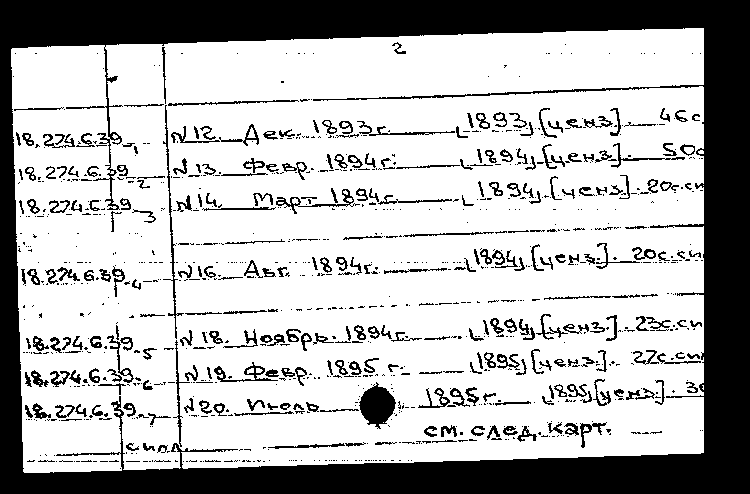 2
18.274.6.39-1 N12. Дек. 1893г. [1893] [ценз]. 46с.
18.274.6.39-2 N13. Февр. 1894г. [1894] [ценз]. 50с
18.274.6.39-3 N14. Март 1894г. [1894] [ценз]. 20с.сип
18.274.6.39-4 N16. Авг. 1894г. [1894] [ценз.]. 20с.сип
18.274.6.39-5 N18. Ноябрь. 1894г. [1894] [ценз.]. 23с.сип
18.274.6.39-6 N19. Февр. 1895г. [1895] [ценз]. 27с.сип
18.274.6.39-7 N20. Июль 1895г. [1895] [ценз]. 3
см. след. карт.